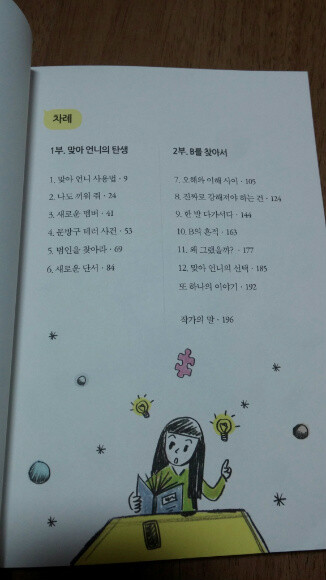 차례
1부. 맞아 언니의 탄생
1. 맞아 언니 사용법 · 9
2. 나도 끼워 줘 · 24
3. 새로운 멤버 · 41
4. 문방구 테러 사건 · 53
5. 범인을 찾아라 · 69
6. 새로운 단서 · 84
2부. B를 찾아서
7. 오해와 이해 사이 · 105
8. 진짜로 강해져야 하는 건 · 124
9. 한 발 다가서다 · 144
10. B의 흔적 · 163
11. 왜 그랬을까? · 177
12. 맞아 언니의 선택 · 185
또 하나의 이야기 · 192
작가의 말 · 196